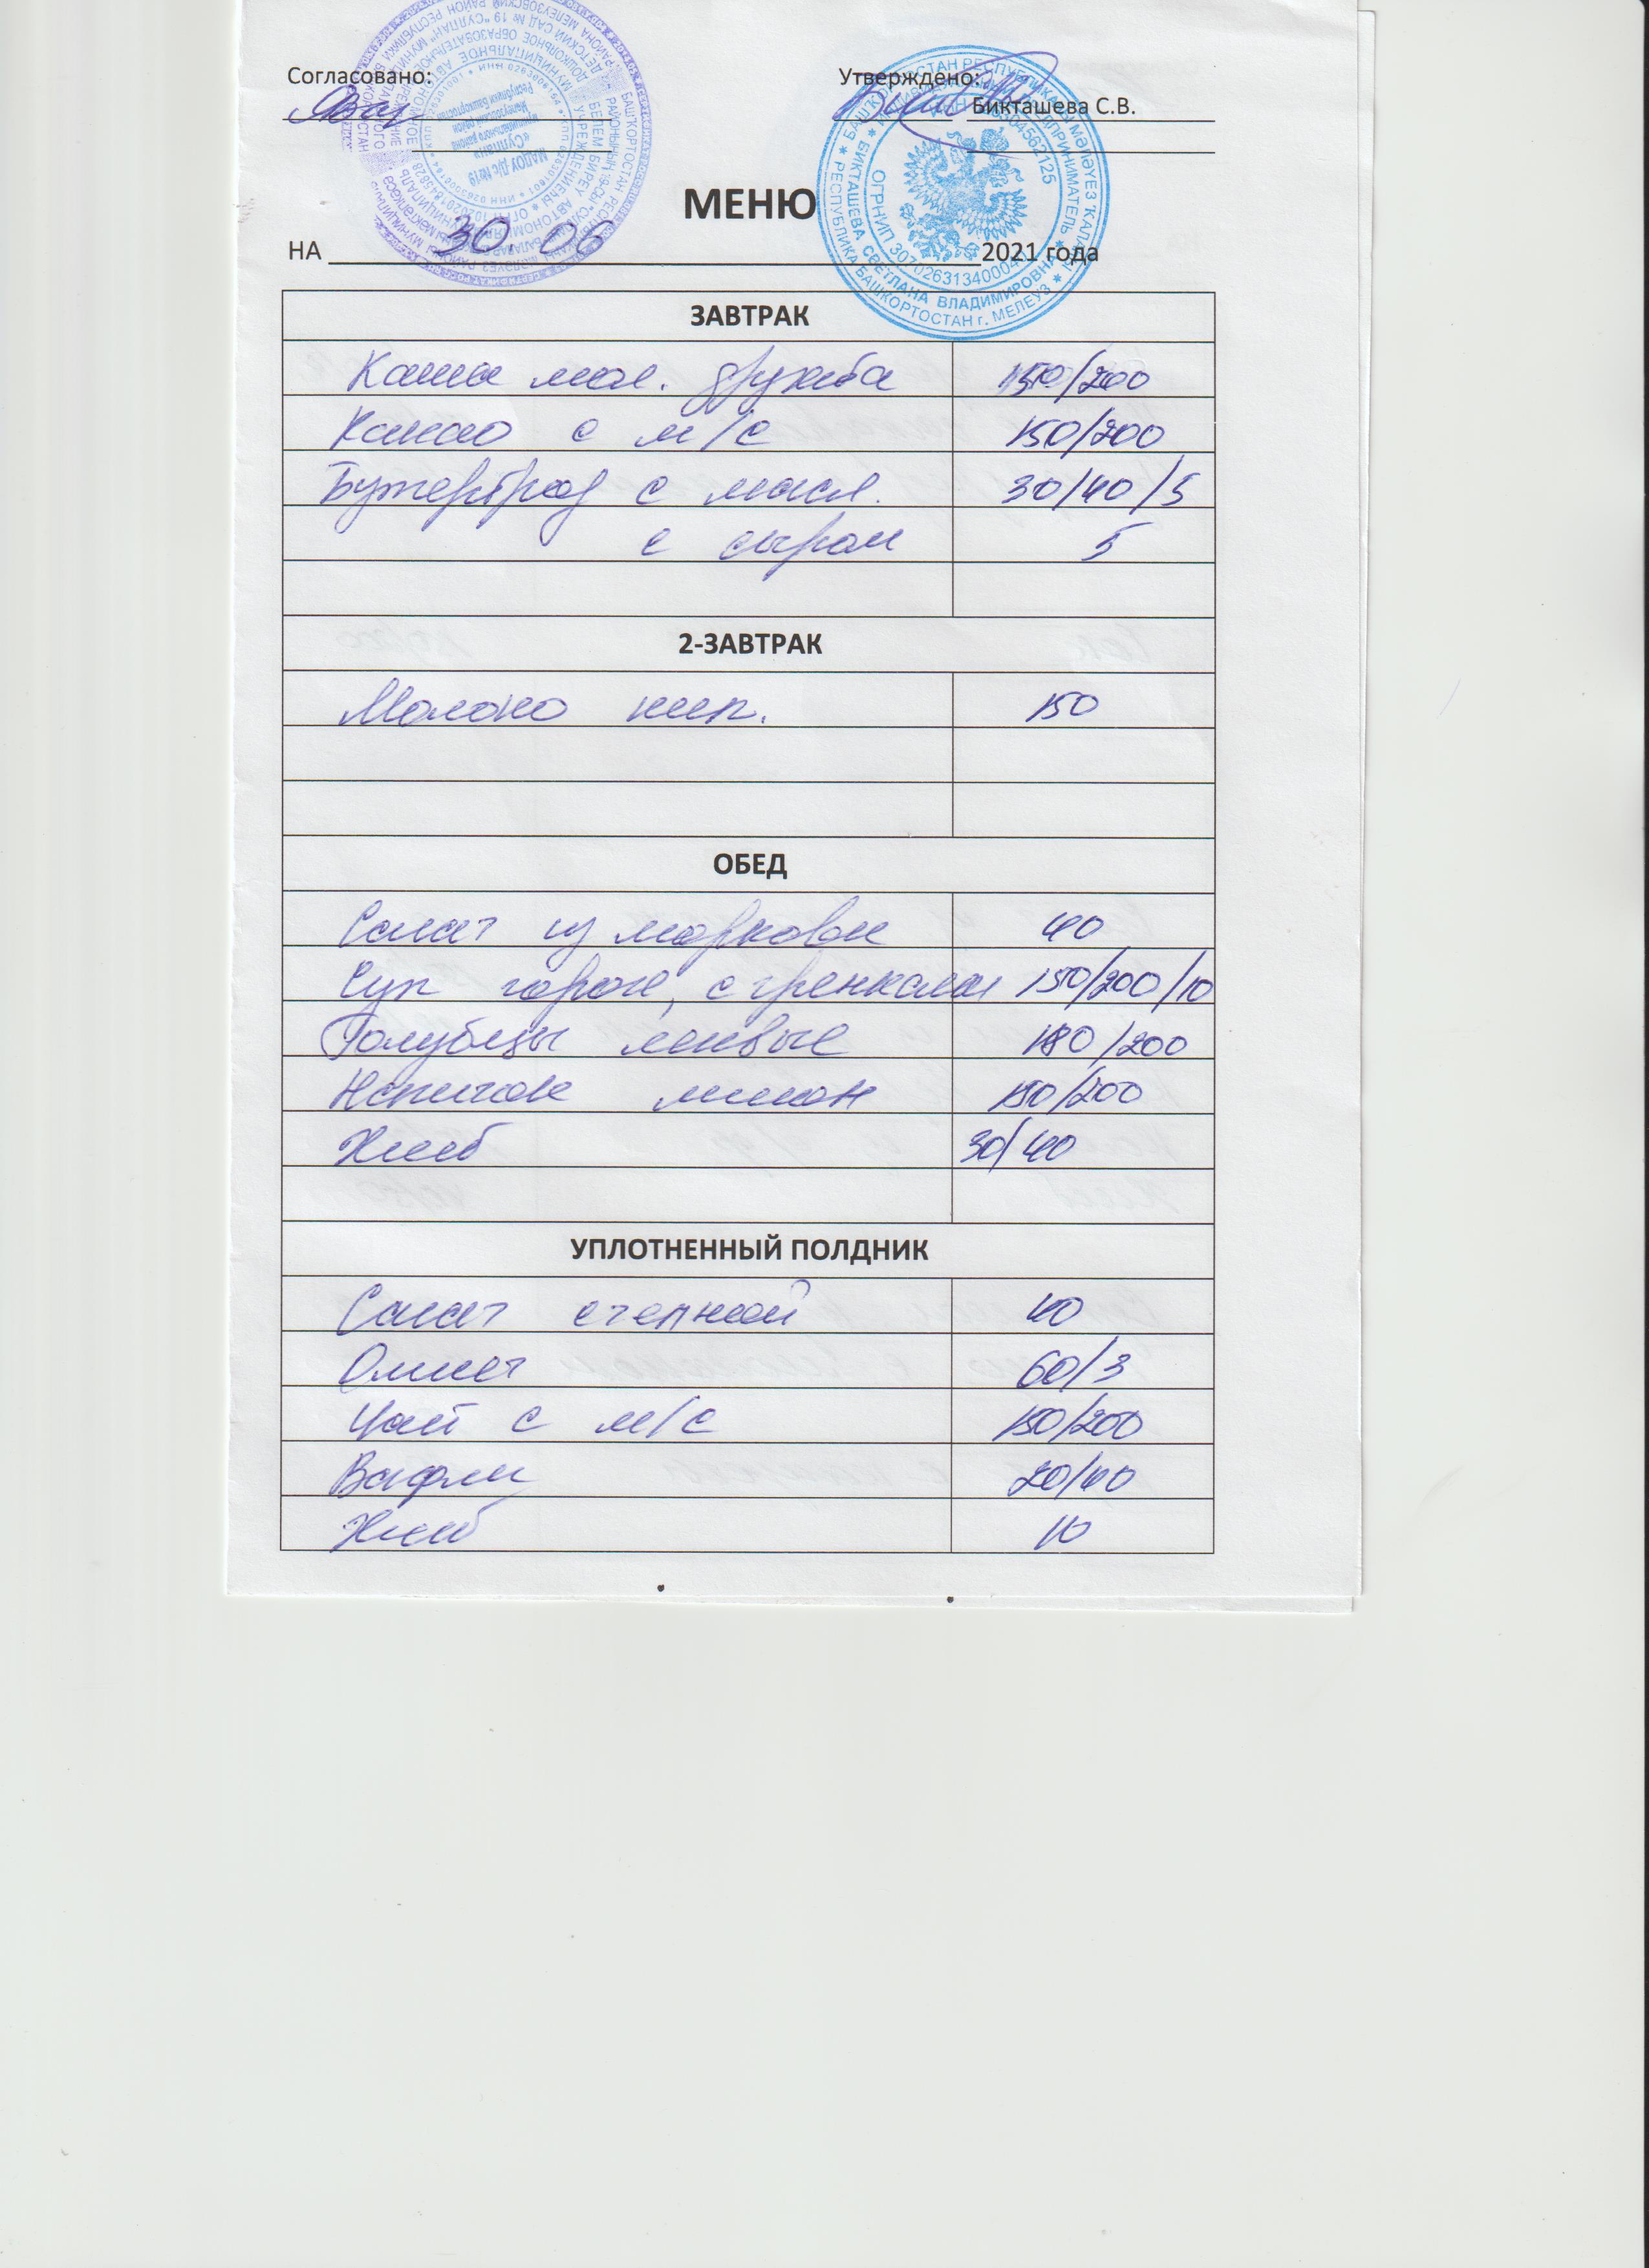 Согласовано: Утверждено:
Бикташева С.В.
МЕНЮ
НА 30.06 2021 года
ЗАВТРАК
Каша мол. дружба 150/200
Какао с м/с 150/200
Бутерброд с масл. 30/40/5
с сыром 5
2-ЗАВТРАК
Молоко кип. 150
ОБЕД
Салат из моркови 40
Суп горох, с гренками 150/200/10
Голубцы ленивые 180/200
Напиток лимон 150/200
Хлеб 30/40
УПЛОТНЕННЫЙ ПОЛДНИК
Салат степной 40
Омлет 60/3
Чай с м/с 150/200
Вафли 20/40
Хлеб 10
БИКТАШЕВА СВЕТЛАНА ВЛАДИМИРОВНА
РЕСПУБЛИКА БАШКОРТОСТАН г. МЕЛЕУЗ
МАДОУ Д/с №19